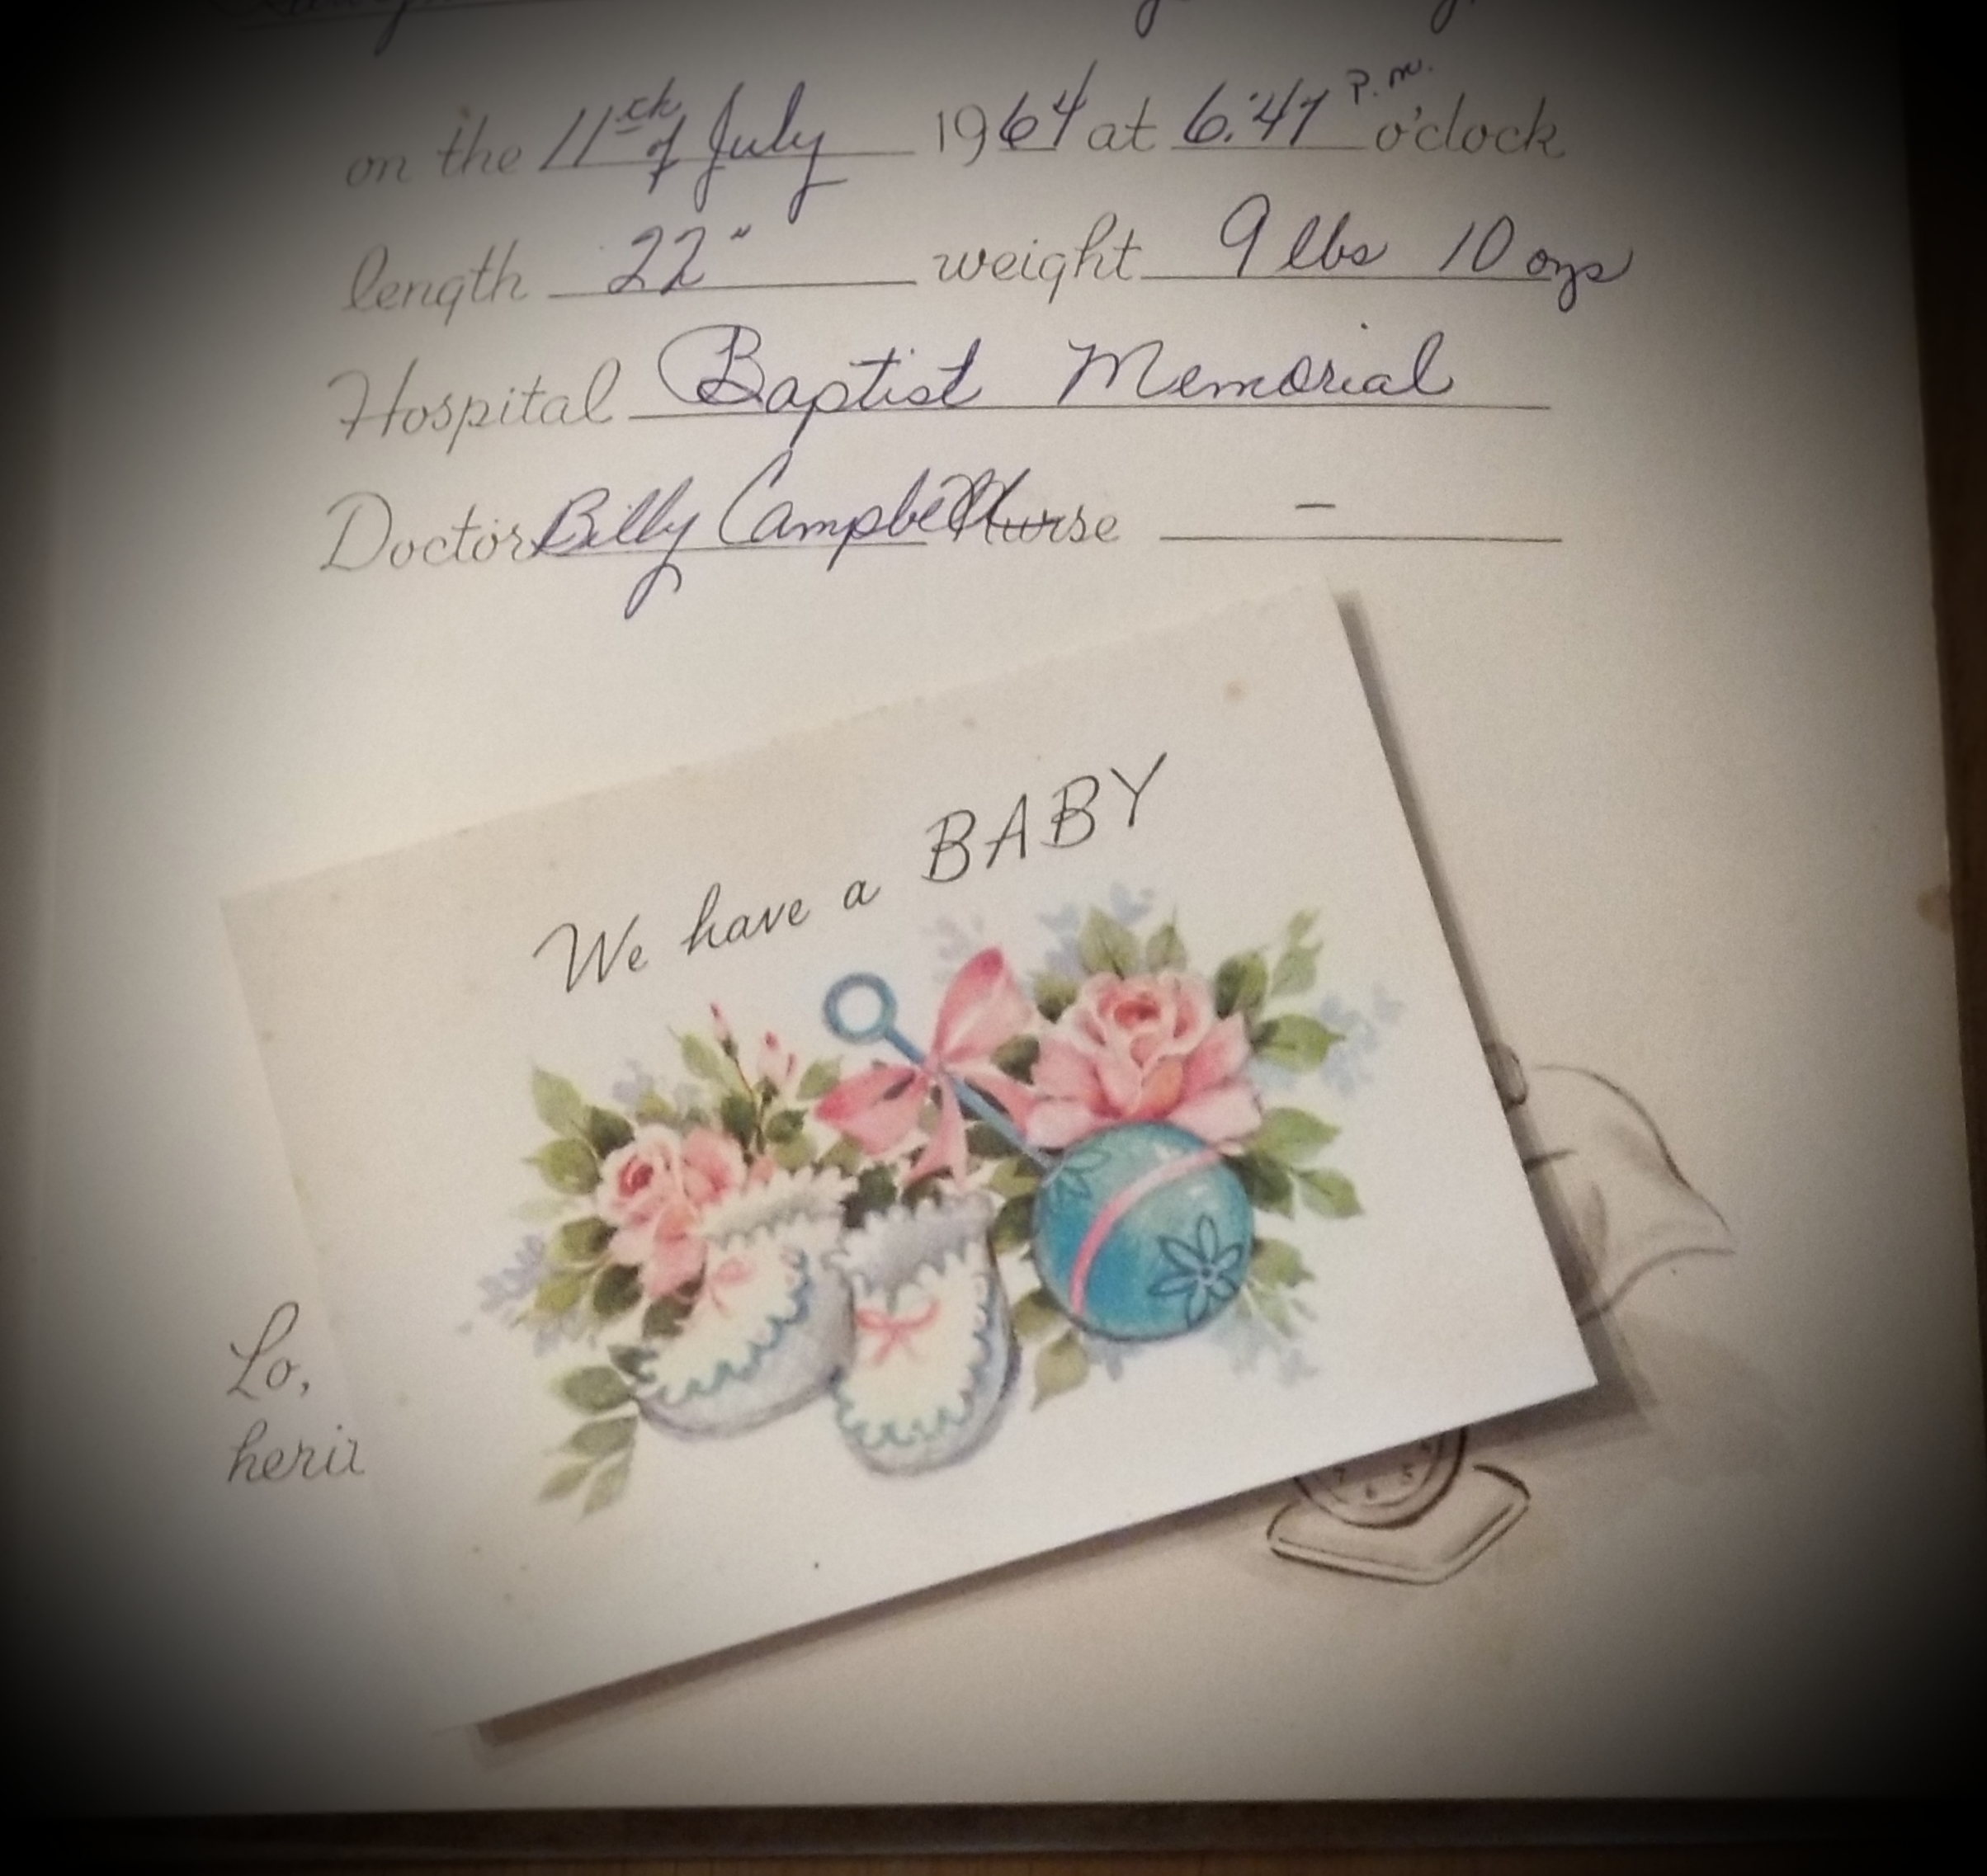 on the 11th of July 1964 at 6:47 P.M. o'clock
length 22" weight 9 lbs 10 ozs
Hospital Baptist Memorial
Doctor Billy Campbell Nurse –
We have a BABY
Lo,
7 6 5